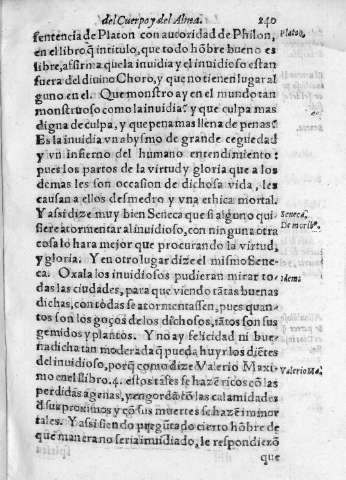 del Cuerpo y del Alma. 240
sentencia de Platon con autoridad de Philon, Platon.
en el libro q̃ intitulo, que todo hõbre bueno es
libre, affirma que la inuidia y el inuidioso estan
fuera del diuino Choro, y que no tienen lugar al
guno en el. Que monstro ay en el mundo tan
monstruoso como la inuidia? y que culpa mas
digna de culpa, y que pena mas llena de penas?
Es la inuidia vn abysmo de grande ceguedad
y vn infierno del humano entendimiento:
pues los partos de la virtud y gloria que a los
demas les son occasion de dichosa vida, les
causan a ellos desmedro y vna ethica mortal.
Y assi dize muy bien Seneca que si alguno qui- Seneca,
siere atormentar al inuidioso, con ninguna otra De morib9.
cosa lo hara mejor que procurando la virtud,
y gloria. Y en otro lugar dize el mismo Sene-
ca. Oxala los inuidiosos pudieran mirar to- Idem.
das las ciudades, para que viendo tãtas buenas
dichas, con todas se atormentassen, pues quan-
tos son los goços de los dichosos, tãtos son sus
gemidos y plantos. Y no ay felicidad ni bue-
na dicha tan moderada q̃ pueda huyr los diẽtes
del inuidioso, porq̃ como dize Valerio Maxi Valerio Ma.
mo en el libro. 4. estos tales se hazẽ ricos cõ las
perdidas agenas, y engordã cõ las calamidades
d̃ sus proximos y cõ sus muertes se hazẽ immor
tales. Y assi siendo pregũtado cierto hõbre de
que manera no seria inuidiado, le respondierõ
que